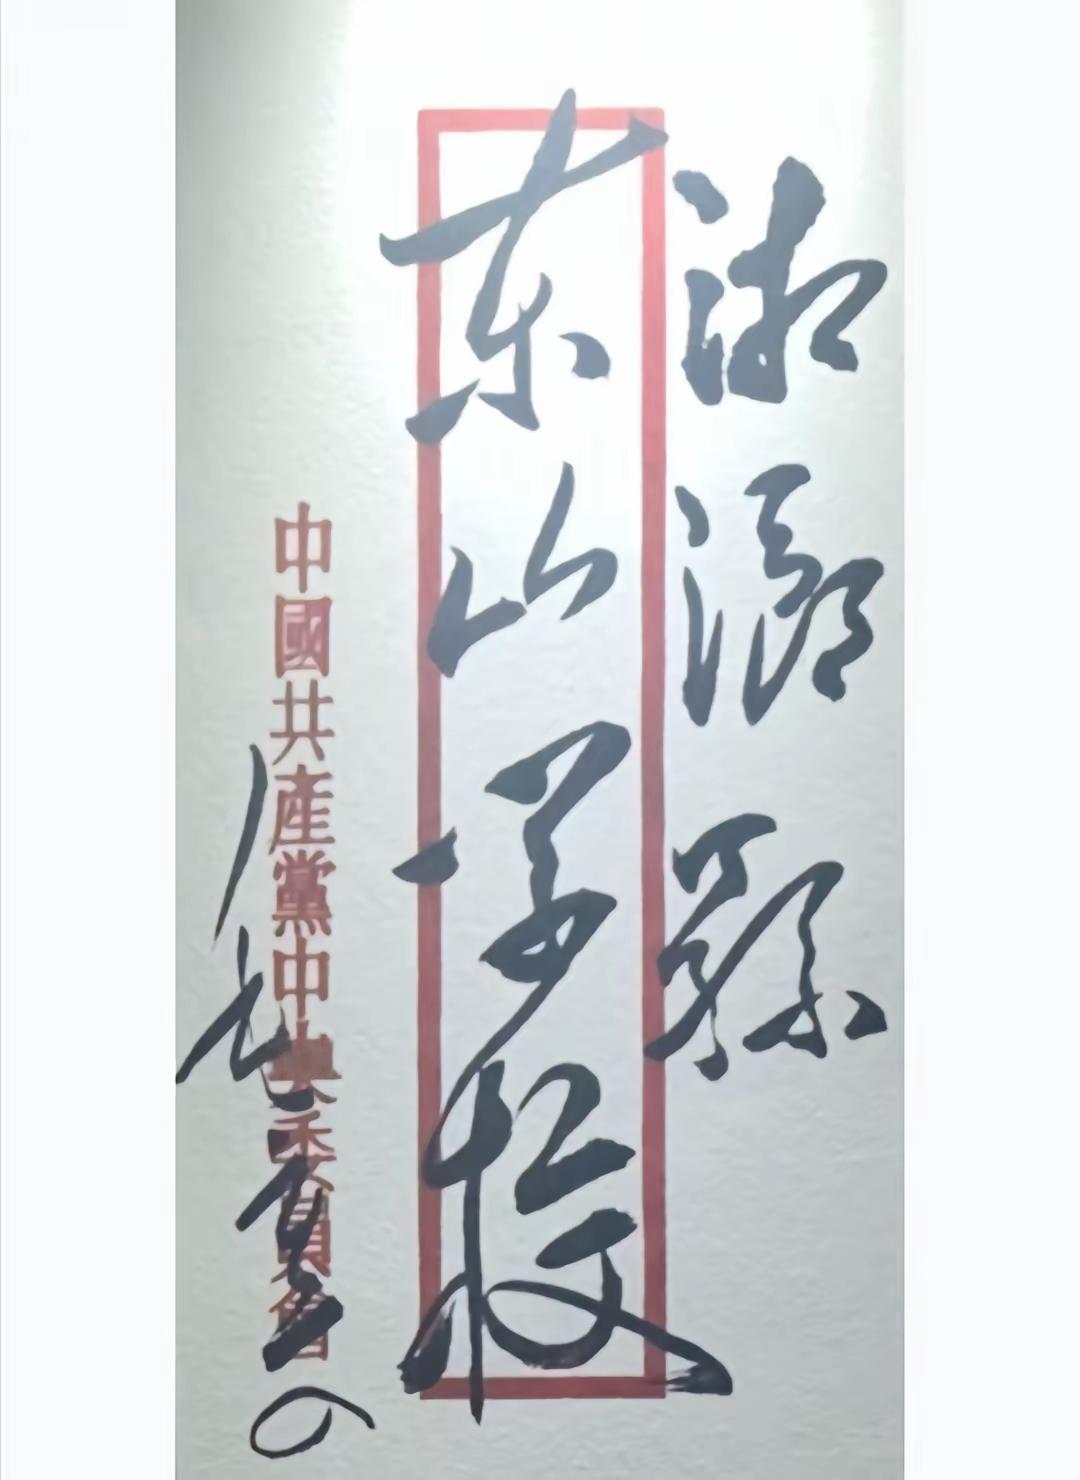 湘鄉縣
东山学校
中國共產黨中央委員會